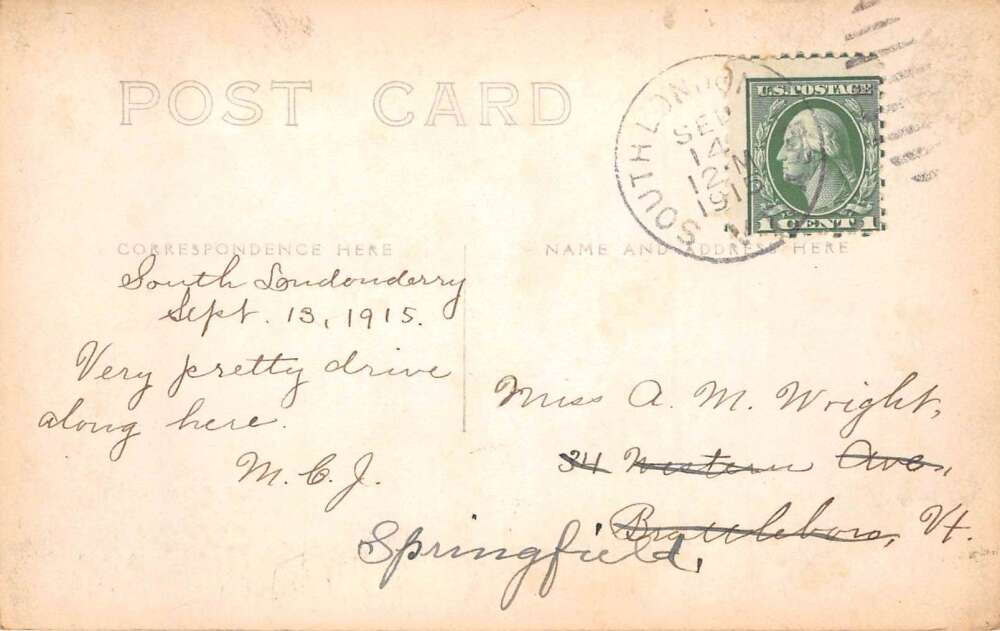 POST CARD
SOUTH LONDON
SEP
14
12-M
1915
U.S. POSTAGE
1 CENT 1
CORRESPONDENCE HERE
South Londonderry
Sept. 13, 1915.
Very pretty drive
along here.
M. C. J.
NAME AND ADDRESS HERE
Miss A. M. Wright,
34 Western Ave.,
Brattleboro, Vt.
Springfield,